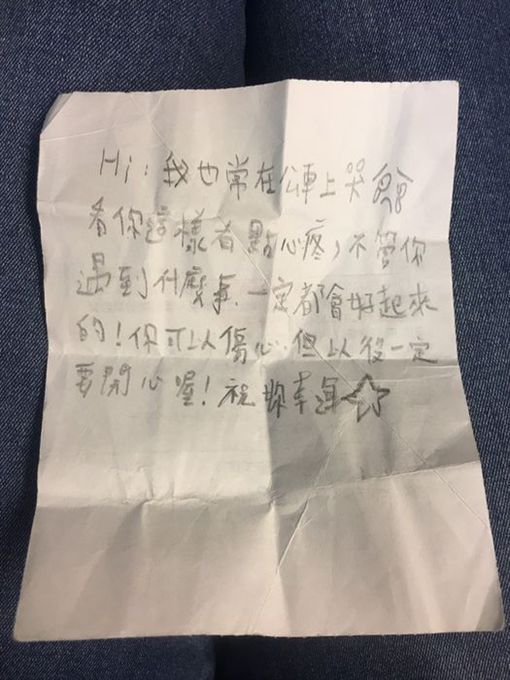 Hi:我也常在公車上哭
看你這樣有點心疼,不管你
遇到什麼事,一定都會好起來
的!你可以傷心,但以後一定
要開心喔!祝妳幸運☆